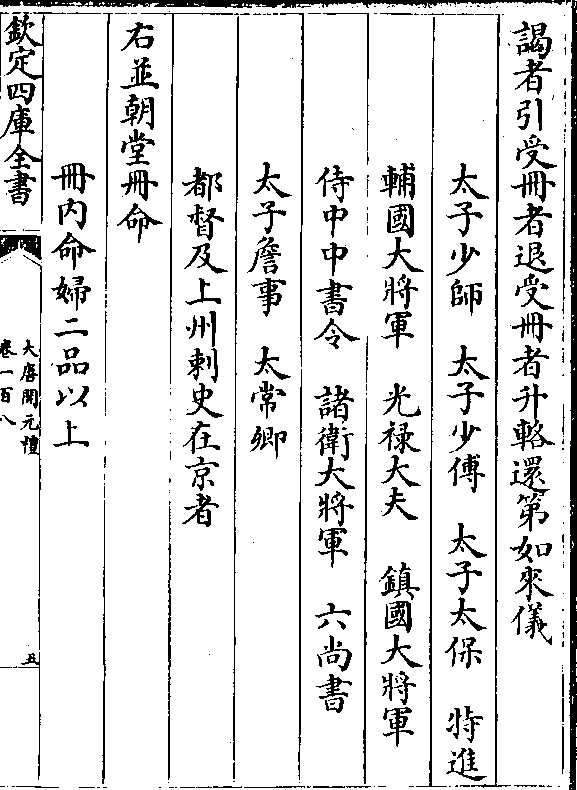 謁者引受冊者退受冊者升輅還第如來儀
太子少師　太子少傅　太子太保　特進
輔國大將軍　光祿大夫　鎮國大將軍
侍中中書令　諸衛大將軍　六尚書
太子詹事　太常卿
都督及上州刺史在京者
右並朝堂冊命
冊內命婦二品以上
欽定四庫全書
大唐開元禮
卷一百八
五